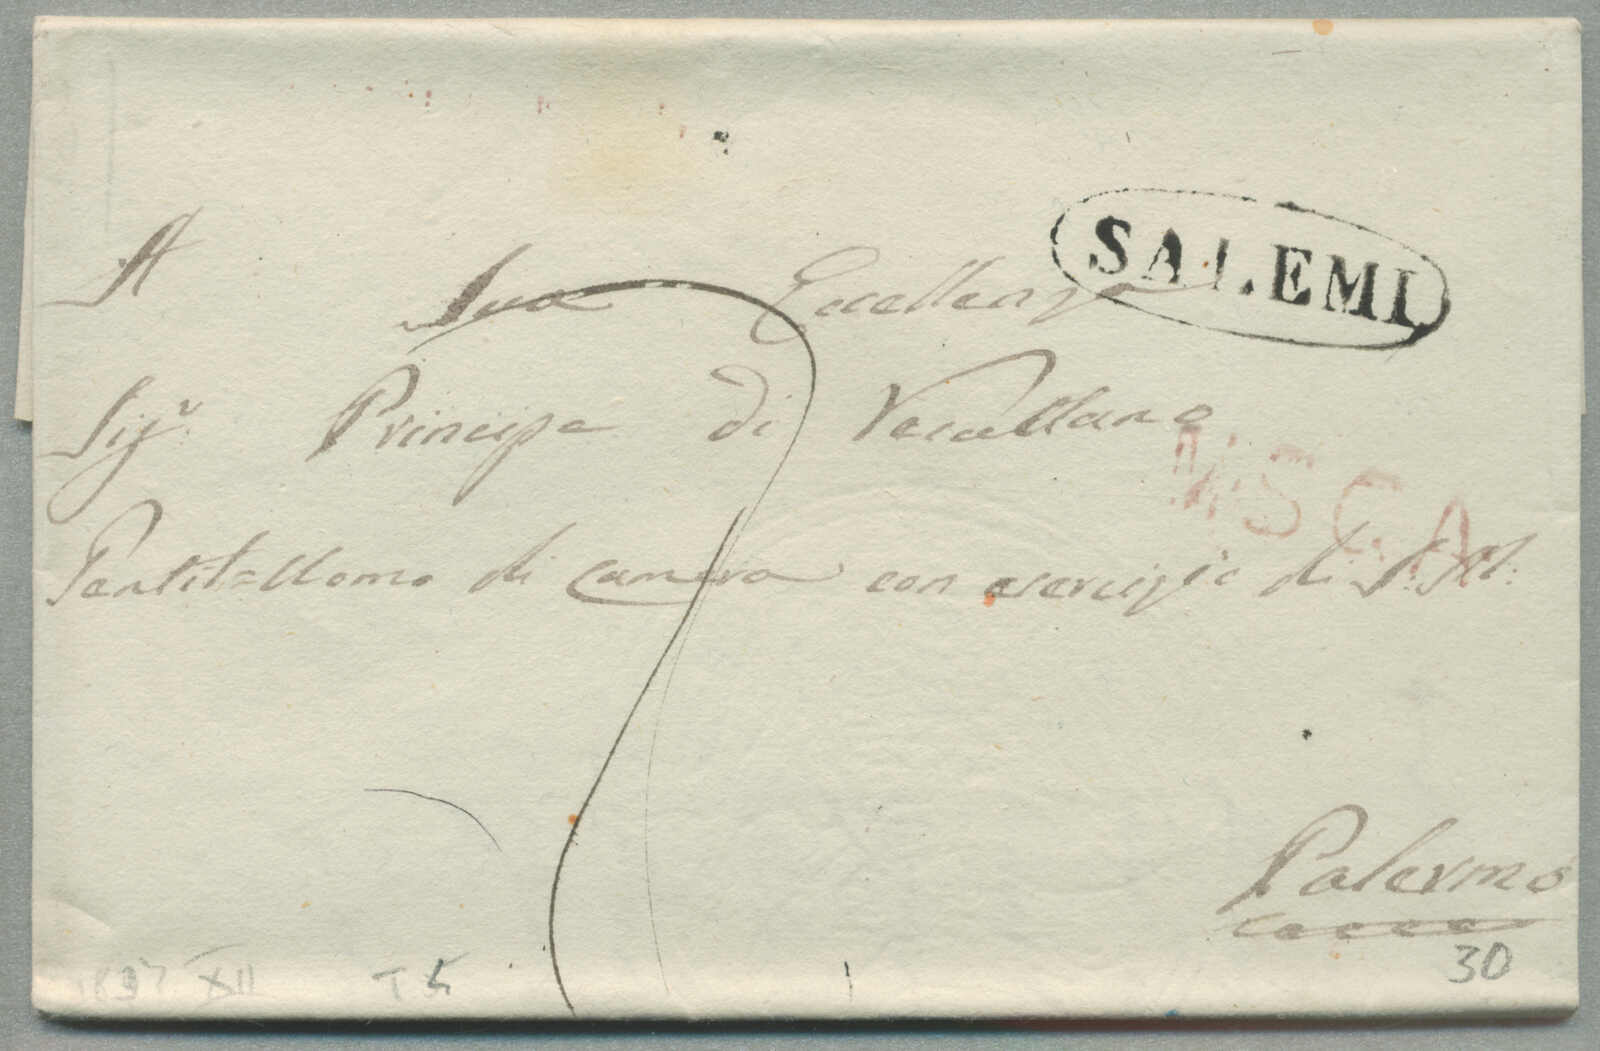 SALEMI
A
Sua Eccellenza
Sigr. Principe di
Gentil=Uomo di camera con esercizio di S. M:
Palermo
30
1837 XII
T 5
7